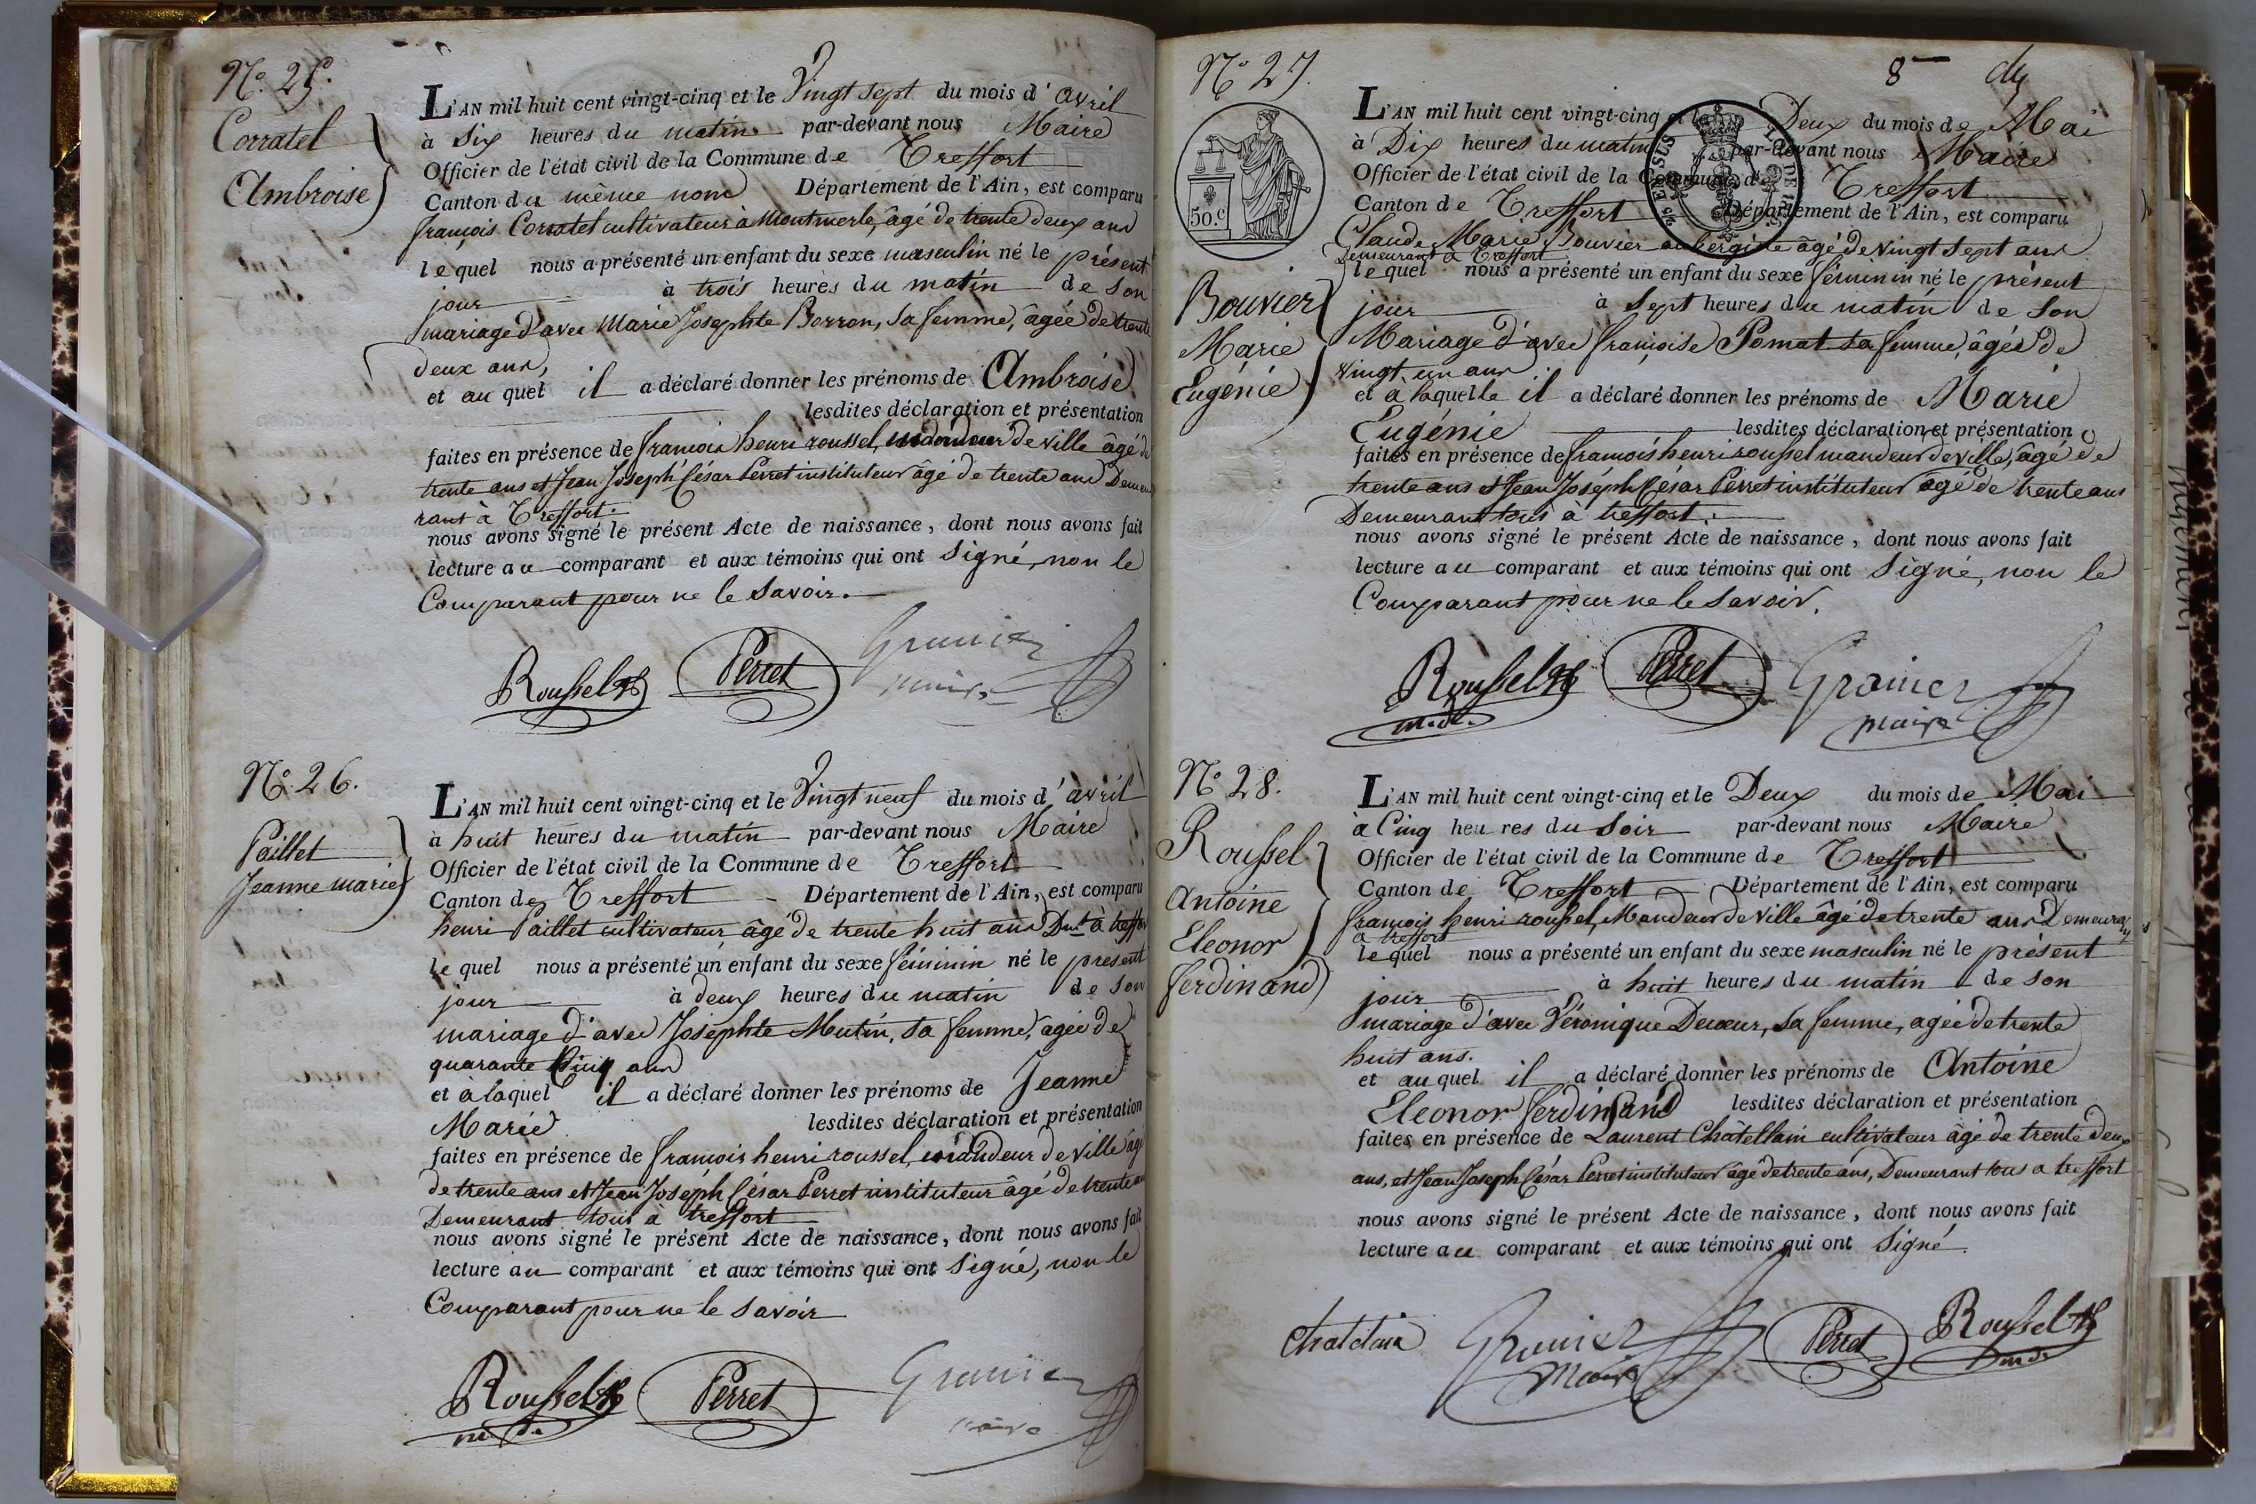 N° 25.
Corratel
Ambroise
L'AN mil huit cent vingt-cinq et le Vingt sept du mois d'avril
à six heures du matin par-devant nous Maire
Officier de l'état civil de la Commune de Treffort
Canton du même nom Département de l'Ain, est comparu
françois Corratel cultivateur à Montmerle, âgé de trente deux ans
lequel nous a présenté un enfant du sexe masculin né le présent
jour à trois heures du matin de son
mariage d'avec Marie Josephte Borron, sa femme, âgée de trente
deux ans,
et au quel il a déclaré donner les prénoms de Ambroise
lesdites déclaration et présentation
faites en présence de françois henri roussel, mandeur de ville âgé de
trente ans et Jean Joseph César Perret instituteur âgé de trente ans Demeu
rant à Treffort.
nous avons signé le présent Acte de naissance, dont nous avons fait
lecture au comparant et aux témoins qui ont signé, non le
Comparant pour ne le savoir.
Roussel Perret Granier
maire
N° 26.
Paillet
Jeanne marie
L'AN mil huit cent vingt-cinq et le Vingt neuf du mois d'avril
à huit heures du matin par-devant nous Maire
Officier de l'état civil de la Commune de Treffort
Canton de Treffort Département de l'Ain, est comparu
henri Paillet cultivateur âgé de trente huit ans Dmt à treffort
le quel nous a présenté un enfant du sexe féminin né le présent
jour à deux heures du matin de son
mariage d'avec Josephte Mutin, sa femme, agée de
quarante Cinq ans
et à laquel il a déclaré donner les prénoms de Jeanne
Marie lesdites déclaration et présentation
faites en présence de françois henri roussel, mandeur de ville âgé
de trente ans et Jean Joseph César Perret instituteur âgé de trente ans
Demeurant tous à treffort
nous avons signé le présent Acte de naissance, dont nous avons fait
lecture au comparant et aux témoins qui ont signé, non le
Comparant pour ne le savoir
Roussel Perret Granier
maire
8
N° 27.
50.c
Bouvier
Marie
Eugénie
L'AN mil huit cent vingt-cinq et le Deux du mois de Mai
à Dix heures du matin par-devant nous Maire
Officier de l'état civil de la Commune de Treffort
Canton de Treffort Département de l'Ain, est comparu
Claude Marie Bouvier aubergiste âgé de vingt sept ans
Demeurant à Treffort
le quel nous a présenté un enfant du sexe féminin né le présent
jour à sept heures du matin de son
Mariage d'avec françoise Pomat sa femme, âgée de
vingt un ans
et à laquelle il a déclaré donner les prénoms de Marie
Eugénie lesdites déclaration et présentation
faites en présence de françois henri roussel mandeur de ville, âgé de
trente ans et Jean Joseph César Perret instituteur âgé de trente ans
Demeurant tous à treffort.
nous avons signé le présent Acte de naissance, dont nous avons fait
lecture au comparant et aux témoins qui ont signé, non le
Comparant pour ne le savoir.
Roussel Perret Granier
maire
N° 28.
Roussel
Antoine
Eleonor
ferdinand
L'AN mil huit cent vingt-cinq et le Deux du mois de Mai
à Cinq heures du soir par-devant nous Maire
Officier de l'état civil de la Commune de Treffort
Canton de Treffort Département de l'Ain, est comparu
françois henri roussel, Mandeur de ville âgé de trente ans Demeurant
à treffort
le quel nous a présenté un enfant du sexe masculin né le présent
jour à huit heures du matin de son
mariage d'avec Véronique Decœur, sa femme, agée de trente
huit ans.
et au quel il a déclaré donner les prénoms de Antoine
Eleonor ferdinand lesdites déclaration et présentation
faites en présence de Laurent Châtellain cultivateur âgé de trente deux
ans, et Jean Joseph César Perret instituteur âgé de trente ans, Demeurant tous a treffort
nous avons signé le présent Acte de naissance, dont nous avons fait
lecture au comparant et aux témoins qui ont signé.
Chatelain Granier Perret Roussel
Maire